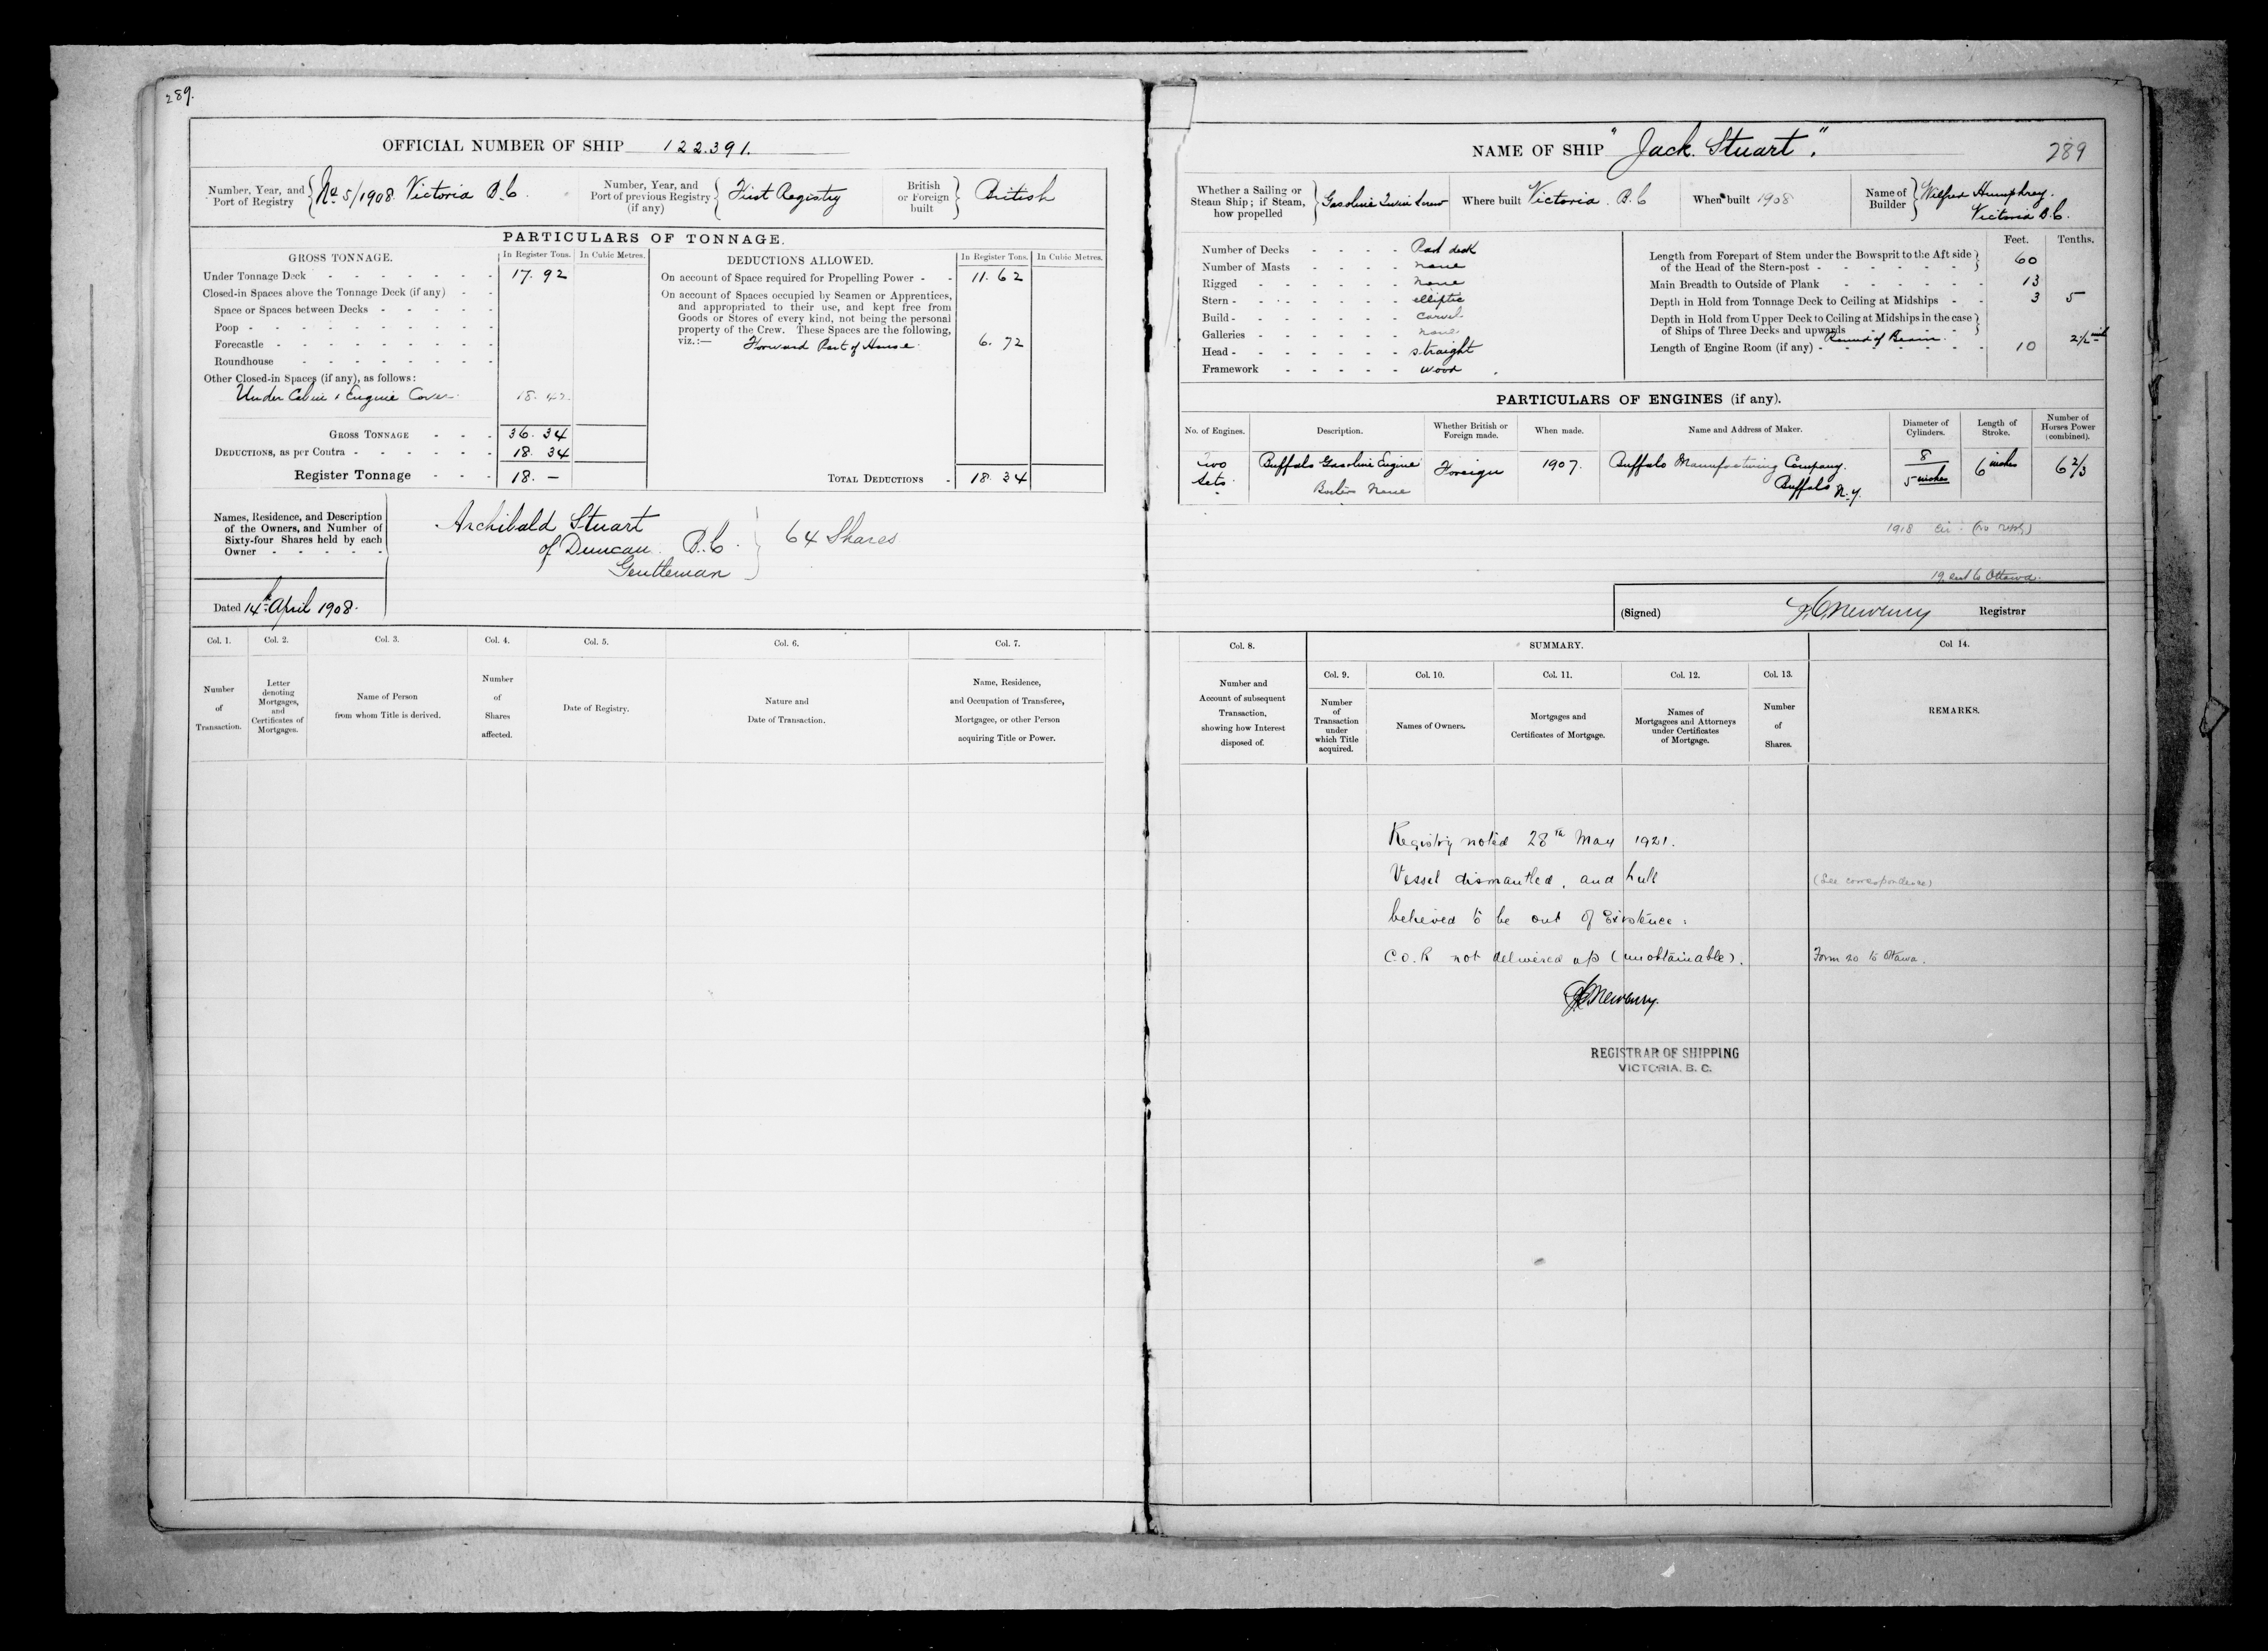 289.
OFFICIAL NUMBER OF SHIP 122.391.
Number, Year, and Port of Registry { No 5/1908. Victoria B.C.
Number, Year, and Port of previous Registry (if any) { First Registry
British or Foreign built } British
PARTICULARS OF TONNAGE.
GROSS TONNAGE. In Register Tons. In Cubic Metres.
Under Tonnage Deck - - - - - - - 17. 92
Closed-in Spaces above the Tonnage Deck (if any) - -
Space or Spaces between Decks - - - - -
Poop - - - - - - - - -
Forecastle - - - - - - - -
Roundhouse - - - - - - -
Other Closed-in Spaces (if any), as follows:
Under Cabin & Engine Cover. 18. 42
GROSS TONNAGE - - - 36. 34
DEDUCTIONS, as per Contra - - - - - - 18. 34
Register Tonnage - - - 18. —
DEDUCTIONS ALLOWED. In Register Tons. In Cubic Metres.
On account of Space required for Propelling Power - - 11. 62
On account of Spaces occupied by Seamen or Apprentices,
and appropriated to their use, and kept free from
Goods or Stores of every kind, not being the personal
property of the Crew. These Spaces are the following,
viz.:— Forward Part of House. 6. 72
TOTAL DEDUCTIONS - 18. 34
Names, Residence, and Description
of the Owners, and Number of
Sixty-four Shares held by each
Owner - - - - -
Archibald Stuart
of Duncan B.C.
Gentleman
} 64 Shares
Dated 14th April 1908.
Col. 1. Col. 2. Col. 3. Col. 4. Col. 5. Col. 6. Col. 7.
Number of Transaction.
Letter denoting Mortgages, and Certificates of Mortgages.
Name of Person from whom Title is derived.
Number of Shares affected.
Date of Registry.
Nature and Date of Transaction.
Name, Residence, and Occupation of Transferee, Mortgagee, or other Person acquiring Title or Power.
NAME OF SHIP "Jack. Stuart".
289
Whether a Sailing or Steam Ship; if Steam, how propelled } Gasoline Twin Screw
Where built Victoria. B.C
When built 1908
Name of Builder } Wilfred Humphrey. Victoria B.C.
Number of Decks - - - - Part deck
Number of Masts - - - - none
Rigged - - - - - none
Stern - - - - - elliptic
Build - - - - - carvel
Galleries - - - - - none
Head - - - - - straight
Framework - - - - - wood
Feet. Tenths.
Length from Forepart of Stem under the Bowsprit to the Aft side
of the Head of the Stern-post - - - - - - } 60
Main Breadth to Outside of Plank - - - - - - 13
Depth in Hold from Tonnage Deck to Ceiling at Midships - - 3 5
Depth in Hold from Upper Deck to Ceiling at Midships in the case
of Ships of Three Decks and upwards - - - - }
Round of Beam. 2 1/2 inch
Length of Engine Room (if any) - - - - - - 10
PARTICULARS OF ENGINES (if any).
No. of Engines. Description. Whether British or Foreign made. When made. Name and Address of Maker. Diameter of Cylinders. Length of Stroke. Number of Horses Power (combined).
Two Sets Buffalo Gasoline Engine Foreign 1907. Buffalo Manufacturing Company. 8 6 inches 6 2/3
Boilers None Buffalo N.Y. 5 inches
1918
to Ottawa.
(Signed) Registrar
Col. 8. SUMMARY. Col 14.
Col. 9. Col. 10. Col. 11. Col. 12. Col. 13.
Number and Account of subsequent Transaction, showing how Interest disposed of.
Number of Transaction under which Title acquired.
Names of Owners.
Mortgages and Certificates of Mortgage.
Names of Mortgagees and Attorneys under Certificates of Mortgage.
Number of Shares.
REMARKS.
Registry noted 28th May 1921.
Vessel dismantled, and hull (See correspondence)
believed to be out of Existence:
C.O.R not delivered up (unobtainable). Form 20 to Ottawa.
REGISTRAR OF SHIPPING
VICTORIA, B. C.